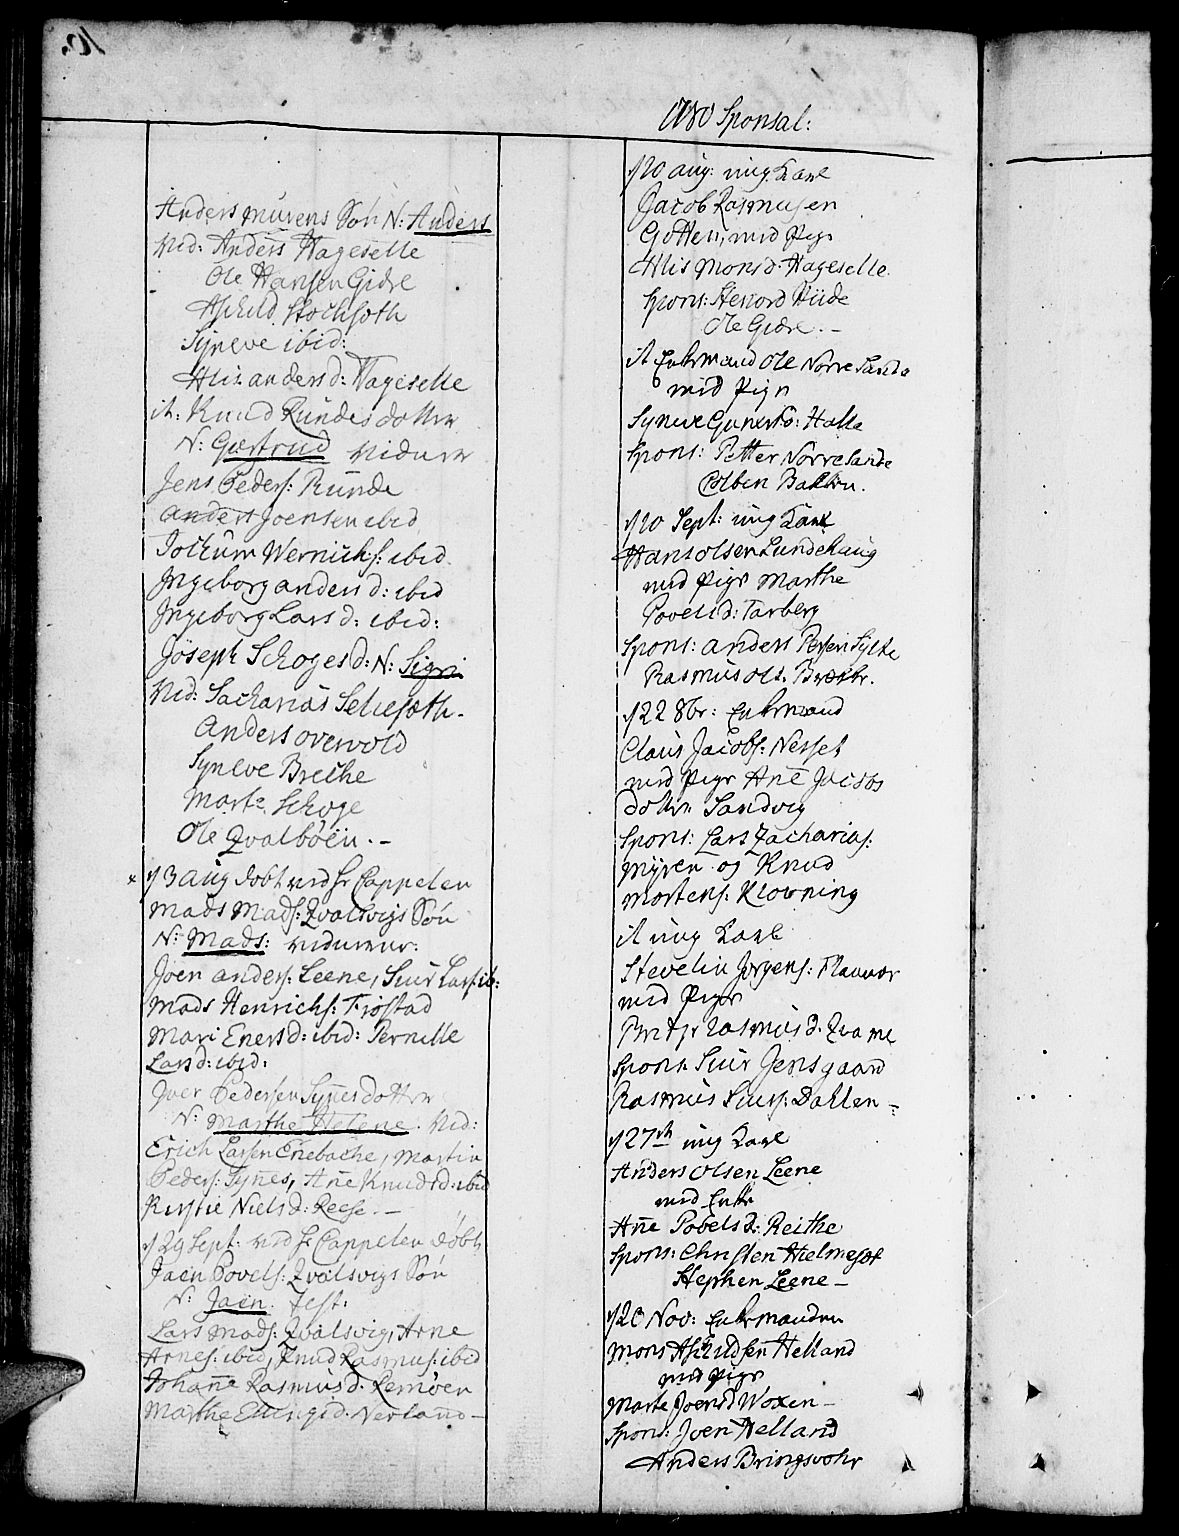 Anders murens Søn N: Anders
Vid: Anders Hageselle
Ole Hansen Gidre
Aschild Stochsæth
Syneve ibid:
Alis anders d: Hageselle
it: Knud Rundes dotter
N: Giertrud Vidner
Jens Peders: Runde
anders Joensen ibid
Jochum Wernichs: ibid.
Ingeborg anders d: ibid
Ingeborg Lars d: ibid:
Joseph Schoges d: N: Sigri
Vid: Sacharias Seliesæth.
Anders overvold
Syneve Breche
Marte Schoge
Ole Qvalbøen. -
x / 3 aug døbt ved Hr Cappelen
Mads Mads: Qvalsvigs Søn
N: Mads: vidner:
Joen anders: Leene, Siur Lars: ib:
Mads Henrichs: Frøstad
Mari Eners d: ibid: Pernille
Lars d: ibid:
Iver Pedersen Synes dotter
N: Marthe Helene. Vid:
Erich Larsen Enebache, Martin
Peders: Synes, Ane Knuds d: ibid
Kirstie Niels d: Reese. -
/ 29 Sept: ved Hr Cappelen døbt
Jaen Povels: Qvalsvigs Søn
N: Jaen. Test:
Lars Mads: Qvalsvig, Arne
Arnes: ibid, Knud Rasmus: ibid
Johane Rasmus d. Remøen
Marthe d. Nerland -
1780 Sponsal:
/ 20 aug: ung Karl
Jacob Rasmusen
Gotten, med Pige
Alis Mons d. Hageselle.
Spons: Riide
Ole Gidre. -
it Enkemand Ole Norre Sande
med Pige
Syneve Guners D: Halle
Spons: Petter Norre Sande
Colben Bakken.
/ 20 Sept: ung Karl
Hans olsen Lundehaug
med Pige Marthe
Povels d: Tarberg
Spons: anders Persen Sylte
Rasmus ols.
/ 22 8br: Enkemand
Claus Jacobs: Nesset
med Pige Ane Jacobs
dotter Sandvig
Spons: Lars Zacharias:
Myren og Knud
Mortens: Klovning
it ung Karl
Stevelin Jørgens: Flauvær
med Pige
Rasmus d. Qvame
Spons Siur Jensgaard
Rasmus Siurs: Dahlen -
/ 27th ung Karl
Anders Olsen Leene
med Enke
Ane Pobels d: Reithe
Spons: Christen Hielmesæt
Stephen Leene -
/ 20 Nov: Enkemanden
Mons Aschildsen Helland
med Pige
Marte Joens d Woxen -
Spons: Joen Helland
Anders Bringsvohr